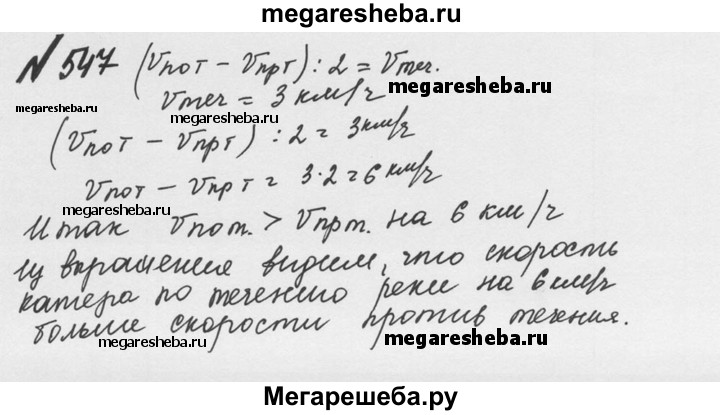 megaresheba.ru
№ 547 (Vпот − Vпрт) : 2 = Vтеч.
megaresheba.ru
Vтеч = 3 км/ч
megaresheba.ru
megaresheba.ru
(Vпот − Vпрт) : 2 = 3 км/ч
Vпот − Vпрт = 3·2 = 6 км/ч
megaresheba.ru
Итак Vпот. > Vпрт. на 6 км/ч
Из выражения видим, что скорость
катера по течению реки на 6 км/ч
больше скорости против течения.
megaresheba.ru
megaresheba.ru
Мегарешеба.ру